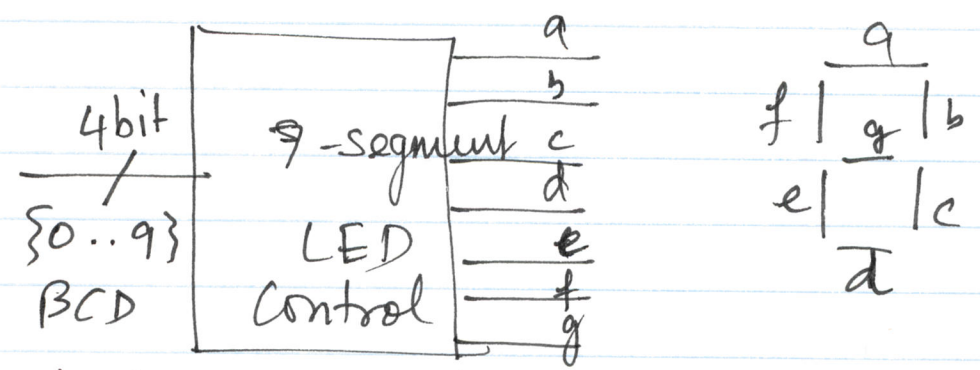 4bit
{0..9}
BCD
7-segment
LED
Control
a
b
c
d
e
f
g
a
f
g
b
e
c
d